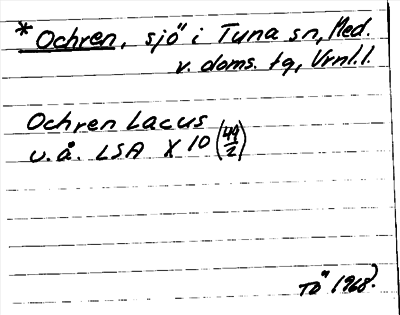 *Ochren, sjö i Tuna sn, Med.
v. doms. tg, Vrnl.l.
Ochren Lacus
u.å. LSA X 10 (49/2)
TÖ 1968.